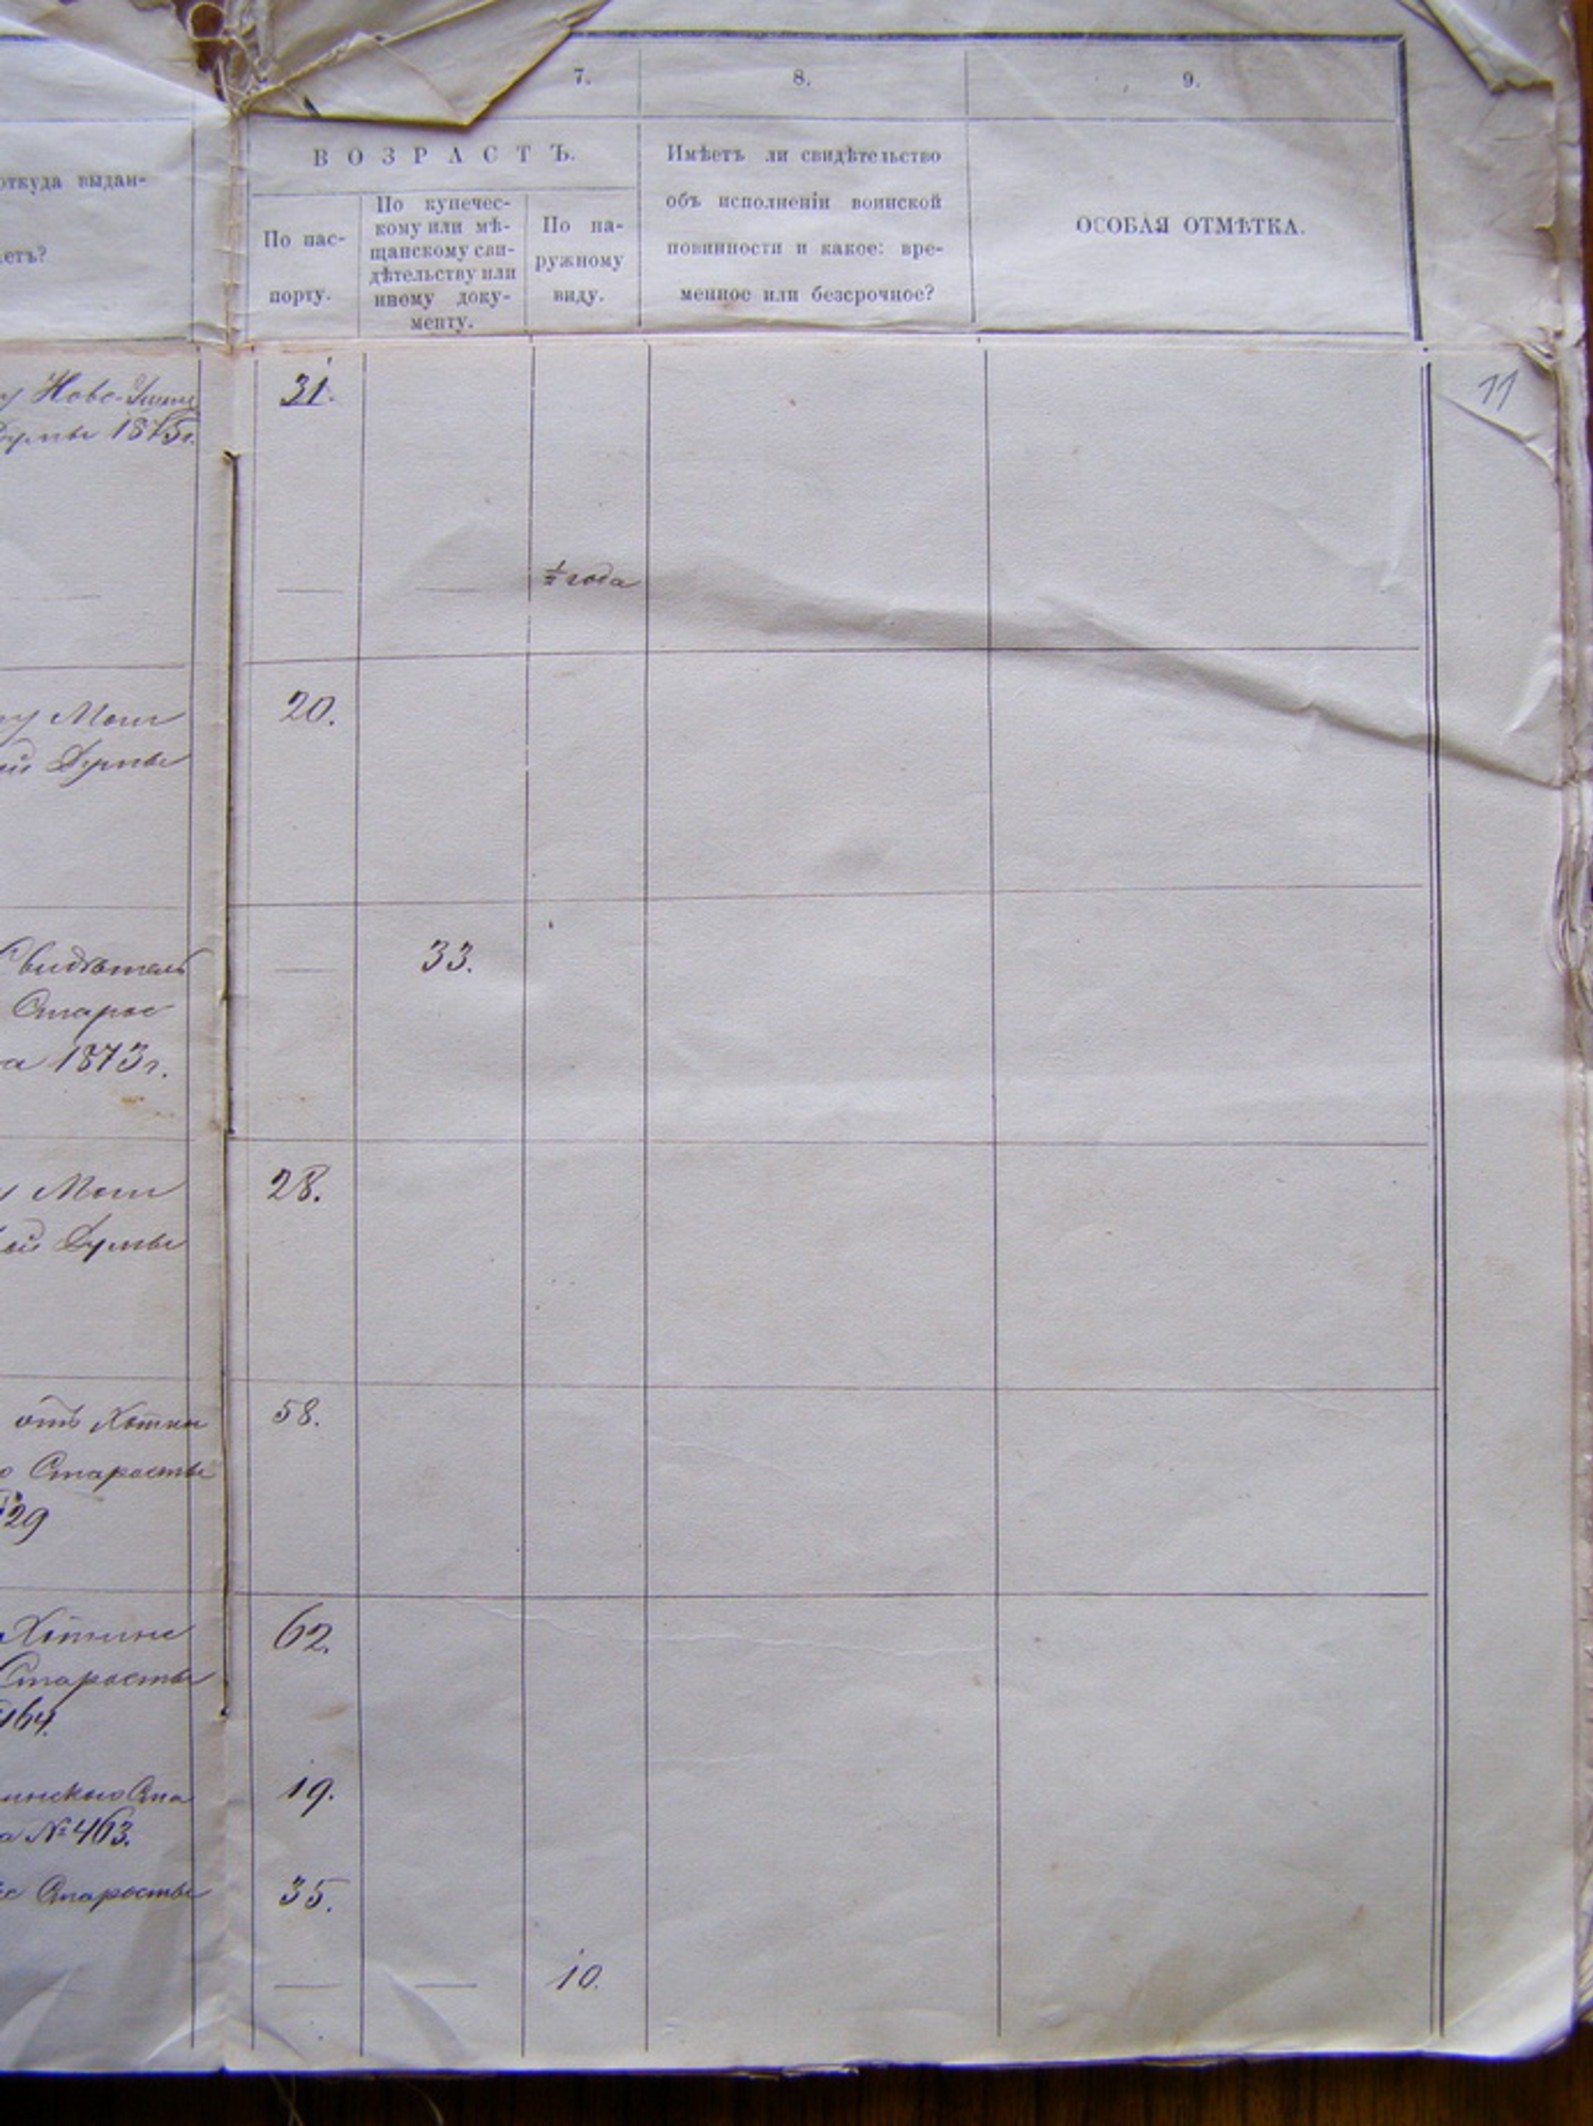 7.
8.
9.
откуда выдан-
етъ?
ВОЗРАСТЪ.
По пас-
порту.
По купечес-
кому или мѣ-
щанскому сви-
дѣтельству или
иному доку-
менту.
По на-
ружному
виду.
Имѣетъ ли свидѣтельство
объ исполненіи воинской
повинности и какое: вре-
менное или безсрочное?
ОСОБАЯ ОТМѢТКА.
11
Ново-
31.
Думы 1875г.
½ года
20.
Думы
Свидѣтель
33.
Старос
а 1873г.
28.
Думы
отъ Хотин
58.
Старосты
29
Хотинс
62.
Старосты
464.
инскаго Ста
19.
а № 463.
Старосты
35.
10.